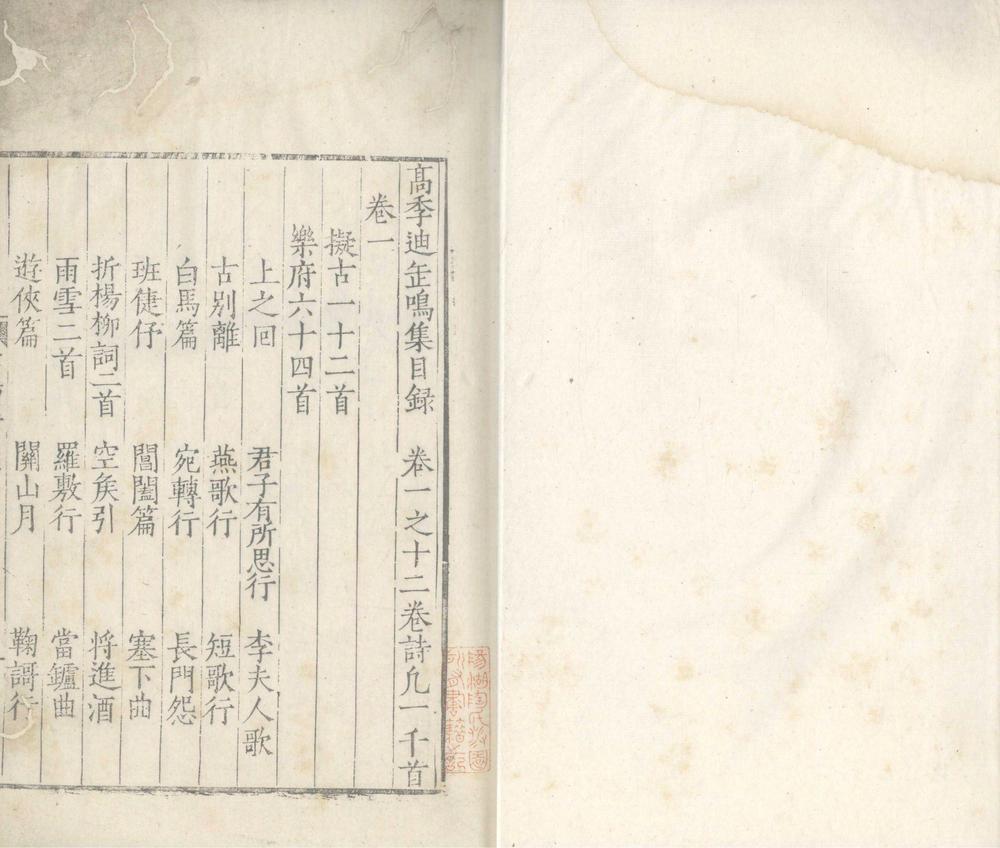 髙季迪缶鳴集目録 卷一之十二卷詩凢一千首
卷一
擬古一十二首
樂府六十四首
上之回 君子有所思行 李夫人歌
古別離 燕歌行 短歌行
白馬篇 宛轉行 長門怨
班倢伃 閶闔篇 塞下曲
折楊柳詞二首 空矦引 将進酒
雨雪二首 羅敷行 當鑪曲
遊俠篇 關山月 鞠謌行